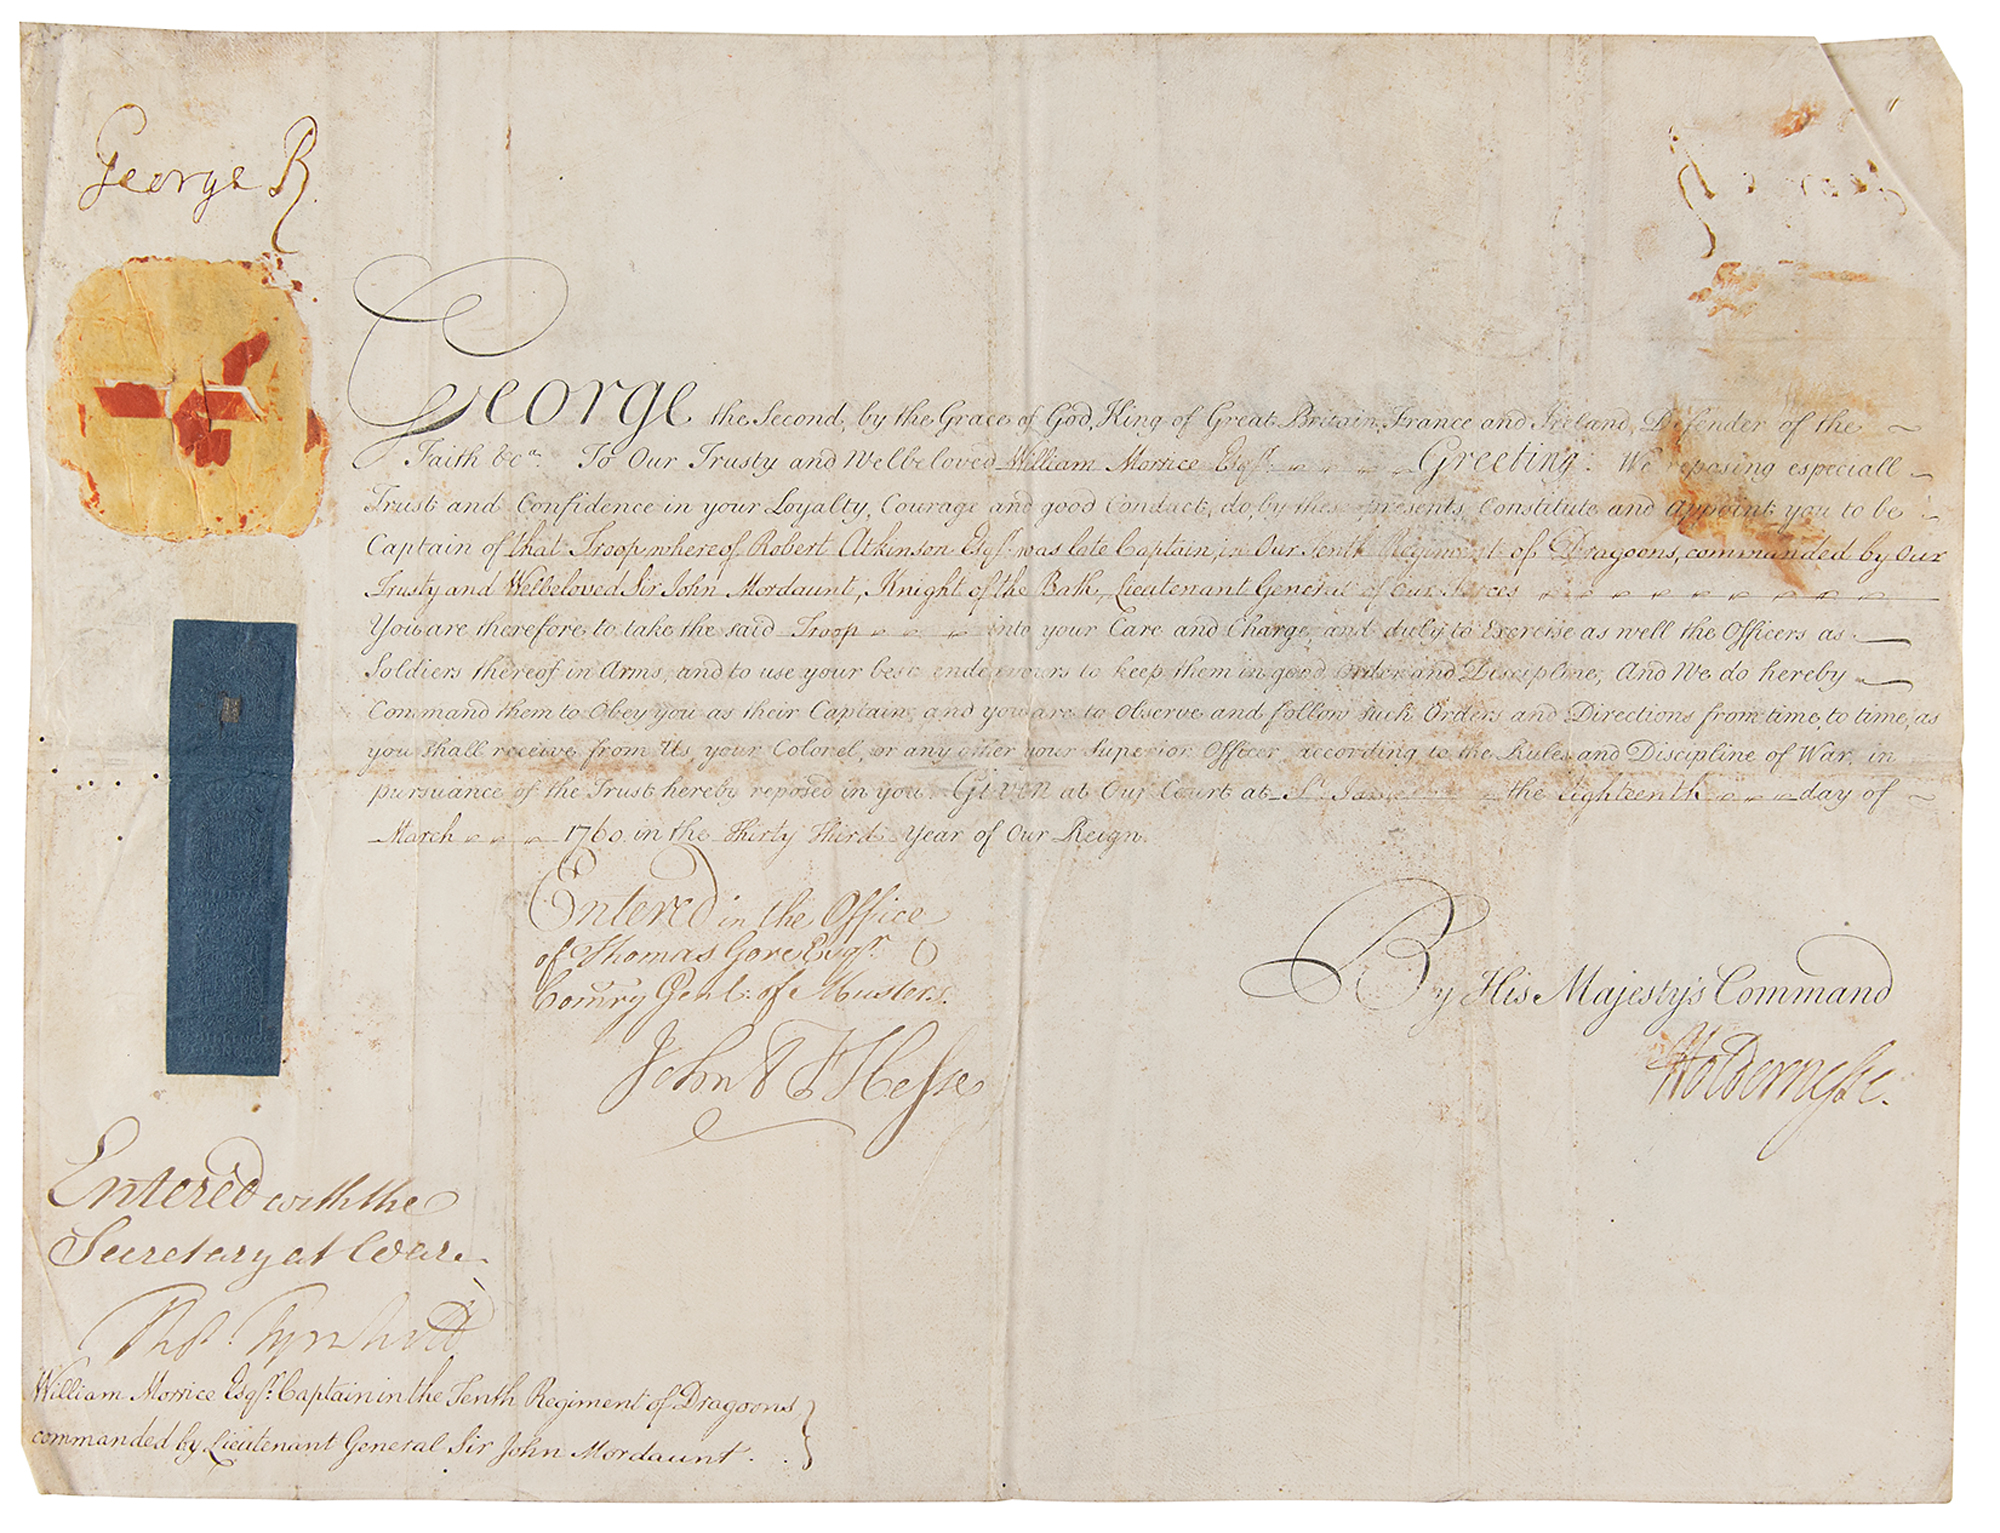 George R
George the Second, by the Grace of God, King of Great Britain, France and Ireland, Defender of the
Faith &c^a. To Our Trusty and Welbeloved William Morrice Esq^r. Greeting: We reposing especiall
Trust and Confidence in your Loyalty, Courage and good Conduct, do, by these presents, Constitute and appoint you to be
Captain of that Troop, whereof Robert Atkinson Esq^r. was late Captain, in Our Tenth Regiment of Dragoons, commanded by Our
Trusty and Welbeloved Sir John Mordaunt, Knight of the Bath, Lieutenant General of Our Forces
You are therefore to take the said Troop into your Care and Charge, and duly to Exercise as well the Officers as
Soldiers thereof in Arms, and to use your best endeavours to keep them in good Order and Discipline; And We do hereby
Command them to Obey you as their Captain, and you are to Observe and follow such Orders and Directions from time, to time, as
you shall receive from Us, your Colonel, or any other your Superior Officer, according to the Rules and Discipline of War, in
pursuance of the Trust hereby reposed in you. Given at Our Court at S^t. James's the Eighteenth day of
March 1760. in the Thirty Third Year of Our Reign.
Entered in the Office
of Thomas Gore Esq^r.
Com̃ry Genl: of Musters.
John Hesse
By His Majesty's Command
Holdernesse.
Entered with the
Secretary at War.
Tho^s. Tyrwhitt
William Morrice Esq^r. Captain in the Tenth Regiment of Dragoons
commanded by Lieutenant General Sir John Mordaunt.